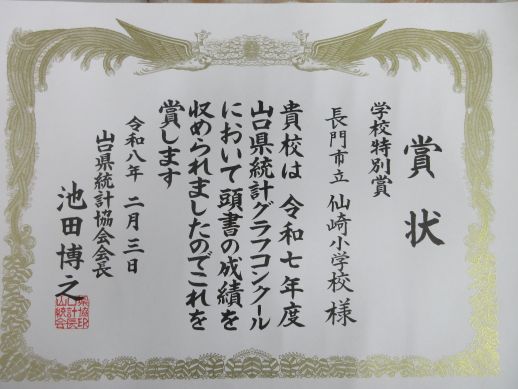 賞状
学校特別賞
長門市立 仙崎小学校 様
貴校は 令和七年度
山口県統計グラフコンクール
において頭書の成績を
収められましたのでこれを
賞します
令和八年 二月 三日
山口県統計協会会長
池田博之